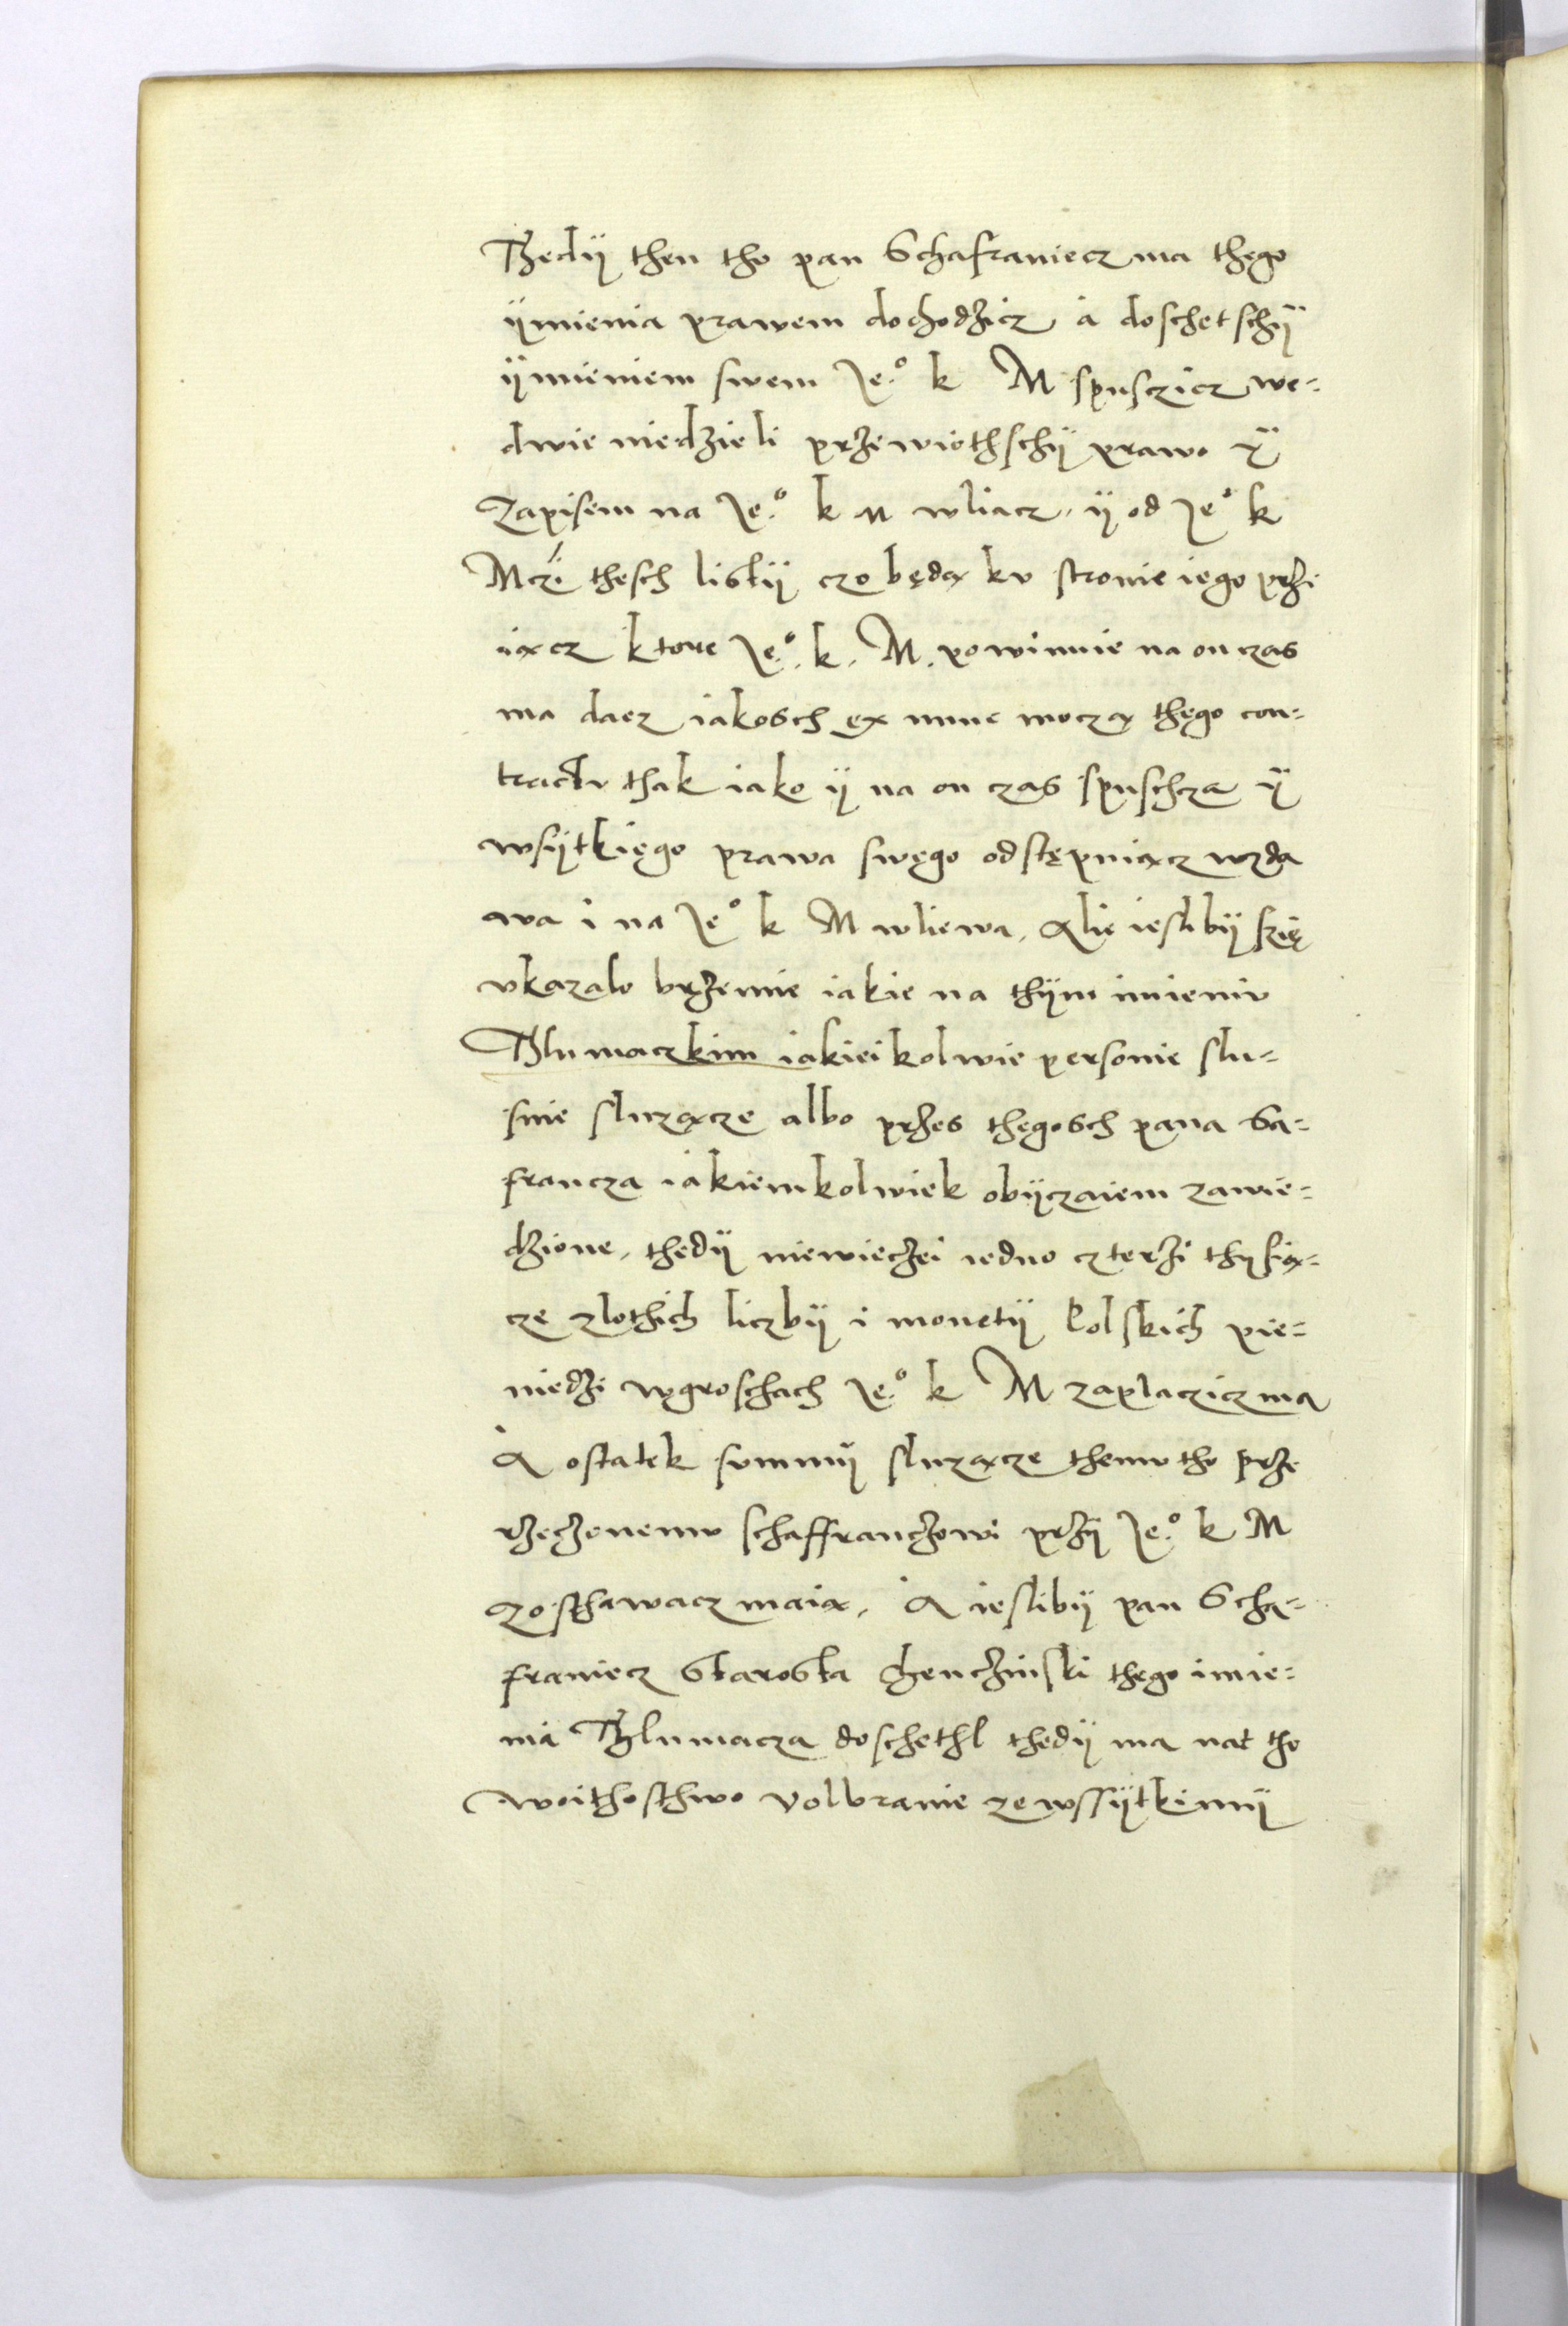 Thedÿ then tho pan Schafraniecz ma thego
ÿmienia prawem dochodzicz a doschetschÿ
ÿmieniem swem Je.º k M spusczicz we-
dwie niedzieli przewiothschÿ prawo ÿ
Zapisem na Je.º k M wliacz, ÿ od Jeº k
Mczi thesch listÿ czo będą kv stronie iego przi
iącz ktore Je.º. k. M. powinnie na on czas
ma dacz iakosch ex nunc moczą thego con-
tractv thak iako ÿ na on czas spuschcza ÿ
wsÿtkiego prawa swego odstępuiącz wzda
wa i na Jeº k M wliewa, Alie ieslibÿ szię
vkazalo brzemie iakie na thÿm imieniv
Thlumaczkim iakieikolwie personie slu-
snie slurzącze albo przes thegosch pana Sa-
francza iakiemkolwiek obÿczaiem zawie-
dzione, thedÿ niewieczei iedno czterzi thysią-
cze zlothich liczbÿ i monetÿ Polskich pie-
niedzi wgroschach Je.º k M zaplaczicz ma
A ostatek summÿ slurzącze themv tho prze
rzeczonemv schaffranczowi przÿ Je.º k M
zosthawacz maią, A ieslibÿ pan Scha-
franiecz Starosta Chenczinski thego imie-
nia Thlumacza doschethl thedÿ ma nat tho
woithosthwo Volbranie zewssÿtkimÿ